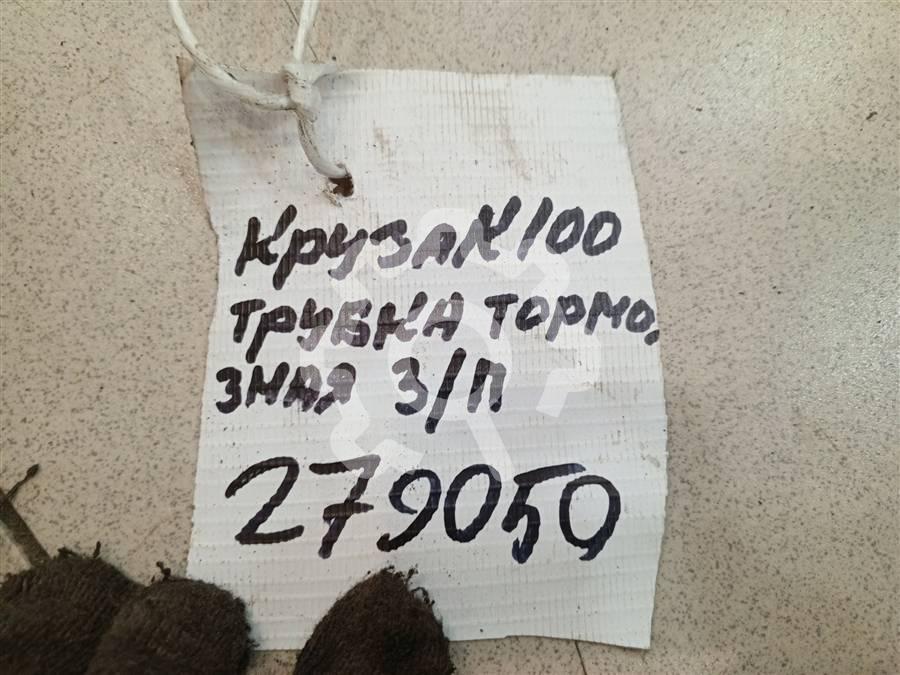 Крузак 100
трубка тормо,
зная з/п
279050